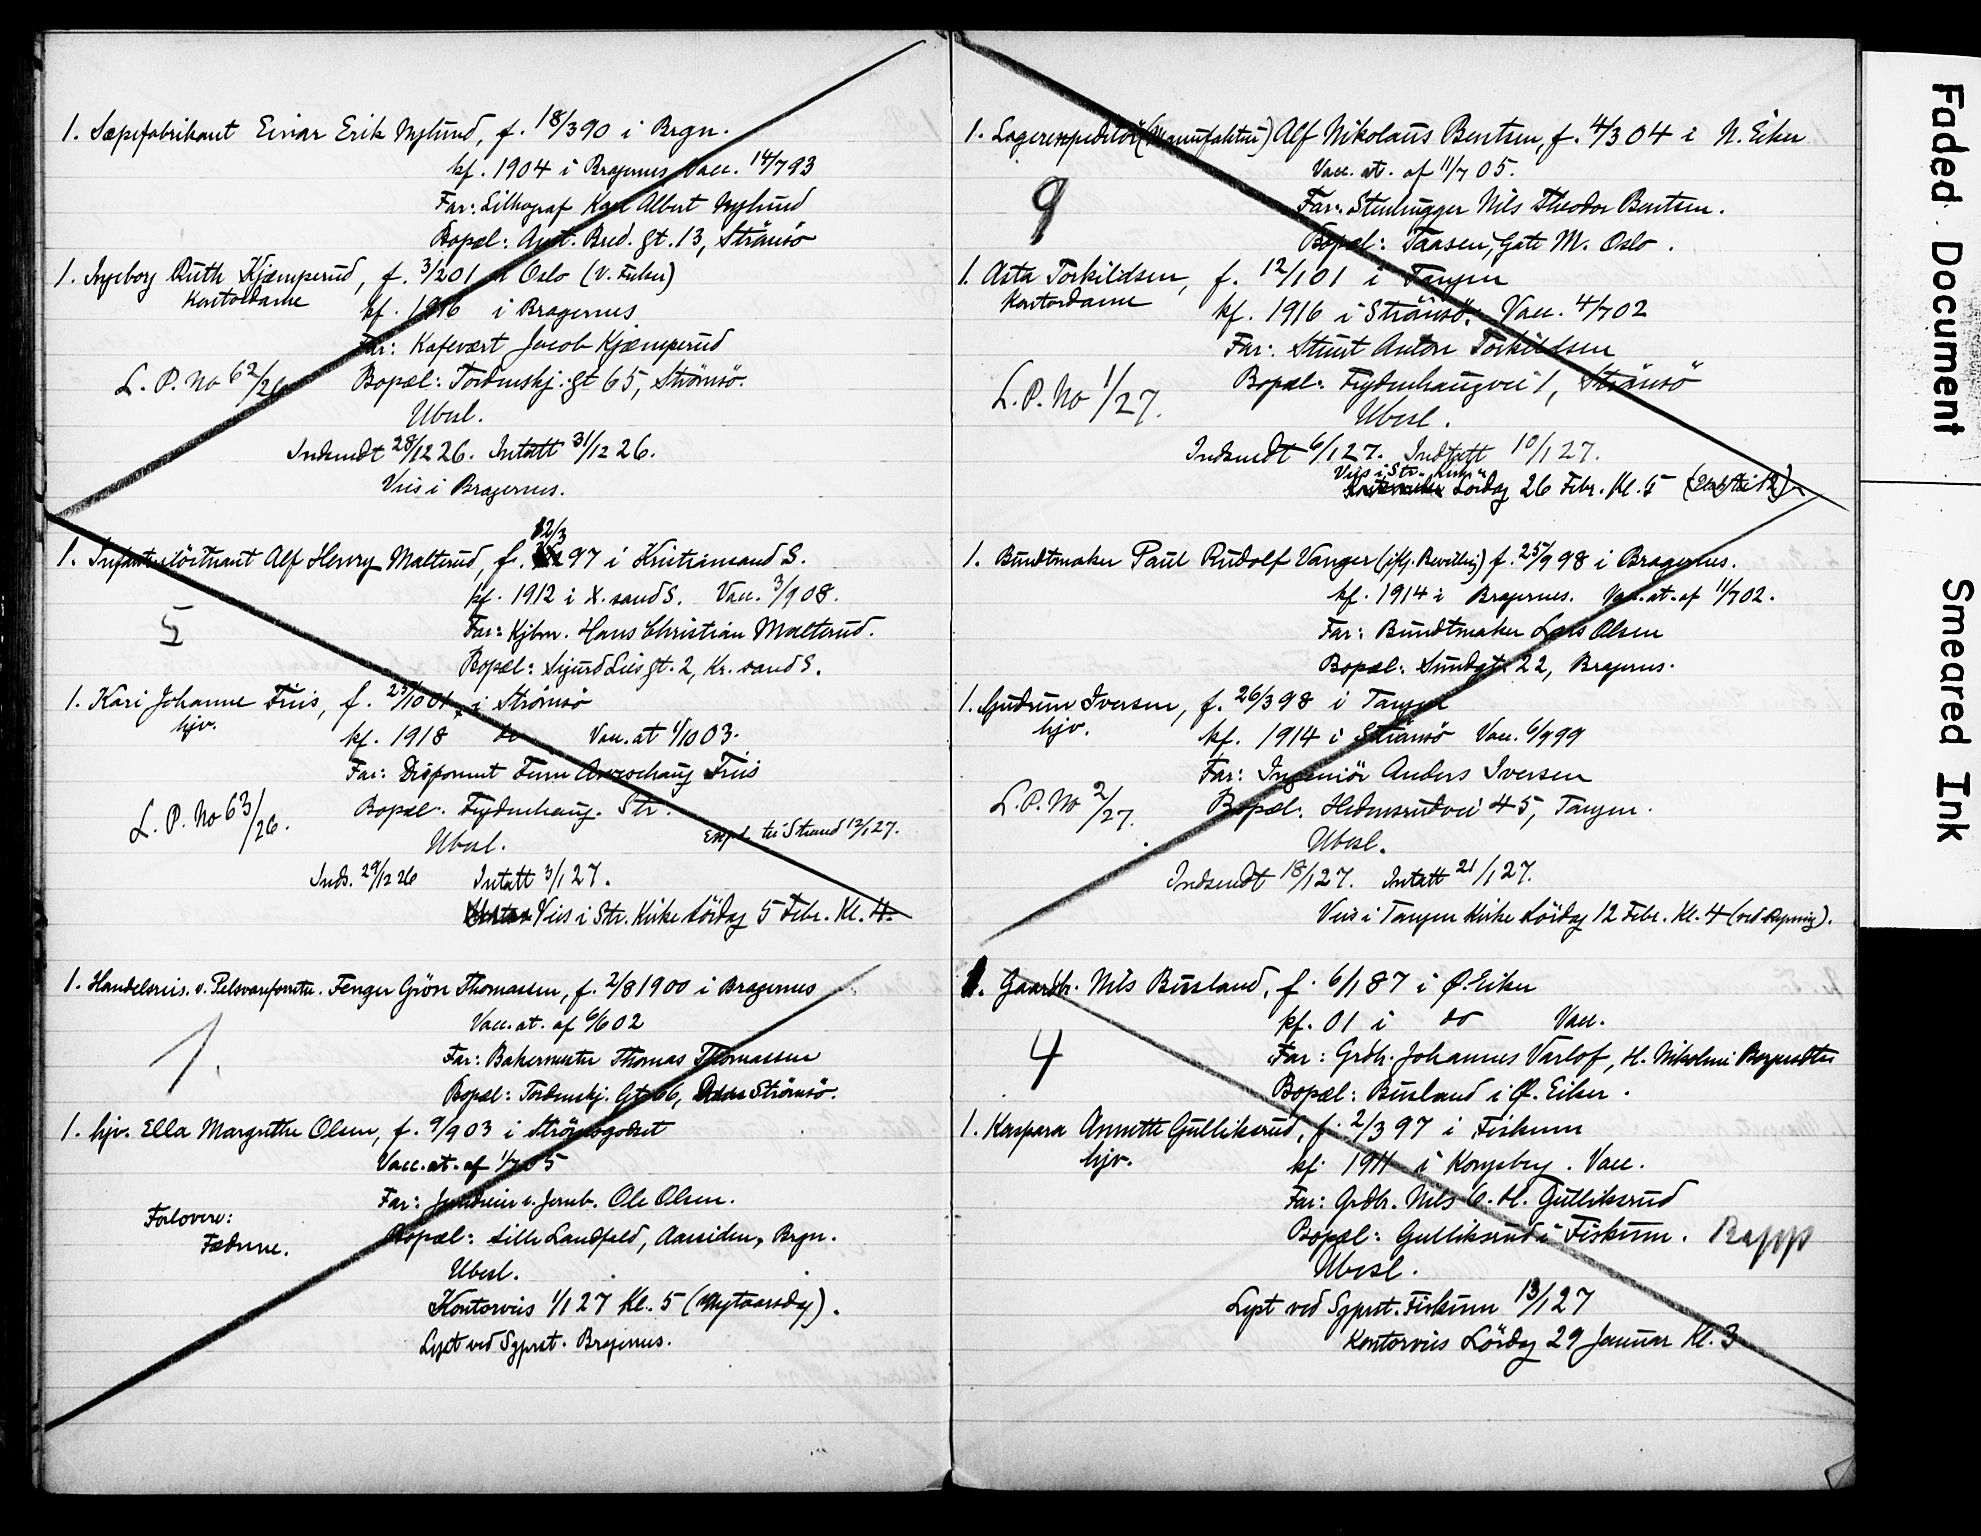 1. Sæpefabrikant Einar Erik Nylund, f. 18/3 90 i Brgn.
kf. 1904 i Bragernes Vacc. 14/7 93
Far: Lithograf Karl Albert Nylund
Bopæl: Aust. Bred. gt. 13, Strömsö
1. Ingeborg Ruth Kjæmperud, f. 3/2 01 i Oslo (V. Aker)
Kontordame
kf. 1916 i Bragernes
Far: Kafevært Jacob Kjæmperud
L. P. No 62/26
Bopæl: Tordenskj. gt 65, Strömsö.
Ubesl.
Indsendt 28/12 26. Intatt 31/12 26.
Vies i Bragernes.
1. Infanteriløitnant Alf Henry Malterud, f. 12/3 97 i Kristiansand S.
kf. 1912 i X.sand S. Vacc. 3/9 08.
5
Far: Kjbm. Hans Christian Malterud.
Bopæl: Sigurd Lies gt. 2, Kr.sand S.
1. Kari Johanne Friis, f. 23/10 01 i Strömsö
hjv.
kf. 1918 do Vacc. at 1/10 03.
Far: Disponent Finn Averschaug Friis
L. P. No 63/26.
Bopæl: Frydenhaug. Str.
Ubesl.
til Strand 12/1 27.
Inds. 29/12 26 Intatt 3/1 27.
Vies i Str. Kirke Lördag 5 Febr. Kl. 4.
1. Handelsreis. v. Pelsvareforretn. Fenger Grön Thomassen, f. 2/8 1900 i Bragernes
Vacc. at. af 6/6 02
1.
Far: Bakermester Thomas Thomassen
Bopæl: Tordenskj. Gt. 66, Strömsö.
1. hjv. Ella Margrethe Olsen, f. 9/9 03 i Strömsgodset
Vacc. at. af 1/7 05
Far: v. Jernb. Ole Olsen.
Forlovere:
Fædrene.
Bopæl: Lille Landfald, Aassiden, Brgn.
Ubesl.
Kontorvies 1/1 27 Kl. 5 (Nytaarsdag).
Lyst ved Sgprst. Bragernes.
1. Lagerexpeditör (Manufaktur) Alf Nikolaus Bentsen, f. 4/3 04 i N. Eiker
Vacc. at. af 11/7 05.
9
Far: Stenhugger Nils Theodor Bentsen.
Bopæl: Taasen, Gate M. Oslo.
1. Asta Torkildsen, f. 12/1 01 i Tangen
Kontordame
kf. 1916 i Strömsö. Vacc. 4/7 02
Far: Stuert Anton Torkildsen
L. P. No 1/27.
Bopæl: Frydenhaugvei 1, Strömsö
Ubesl.
Indsendt 6/1 27. Indtatt 10/1 27.
Vies i Str. Kirke
Lördag 26 Febr. Kl. 5
1. Bundtmaker Paul Rudolf Vanger (iflg. Bevilling) f. 25/9 98 i Bragernes.
kf. 1914 i Bragernes. Vacc. at. af 11/7 02.
Far: Bundtmaker Lars Olsen
Bopæl: Sundgt. 22, Bragernes.
1. Gudrun Iversen, f. 26/3 98 i Tangen
hjv.
kf. 1914 i Strömsö Vacc. 6/9 99
Far: Ingeniör Anders Iversen
L. P. No 2/27.
Bopæl: Hedensrudvei 45, Tangen.
Ubesl.
Indsendt 18/1 27. Intatt 21/1 27.
Vies i Tangen Kirke Lördag 12 Febr. Kl. 4
1. Gaardbr. Nils Busland, f. 6/1 87 i Ø. Eiker
kf. 01 i do Vacc.
4
Far: Grdbr. Johannes Varlof, H. Nikoline
Bopæl: Busland i Ø. Eiker.
1. Kaspara Annette Gulliksrud, f. 2/3 97 i Fiskum
hjv.
kf. 1911 i Kongsberg. Vacc.
Far: Grdbr. Nils C. H. Gulliksrud
Bopæl: Gulliksrud i Fiskum. Rapp
Ubesl.
Lyst ved Sgprst. Fiskum 13/1 27
Kontorvies Lördag 29 Januar Kl. 3
Faded Document
Smeared Ink